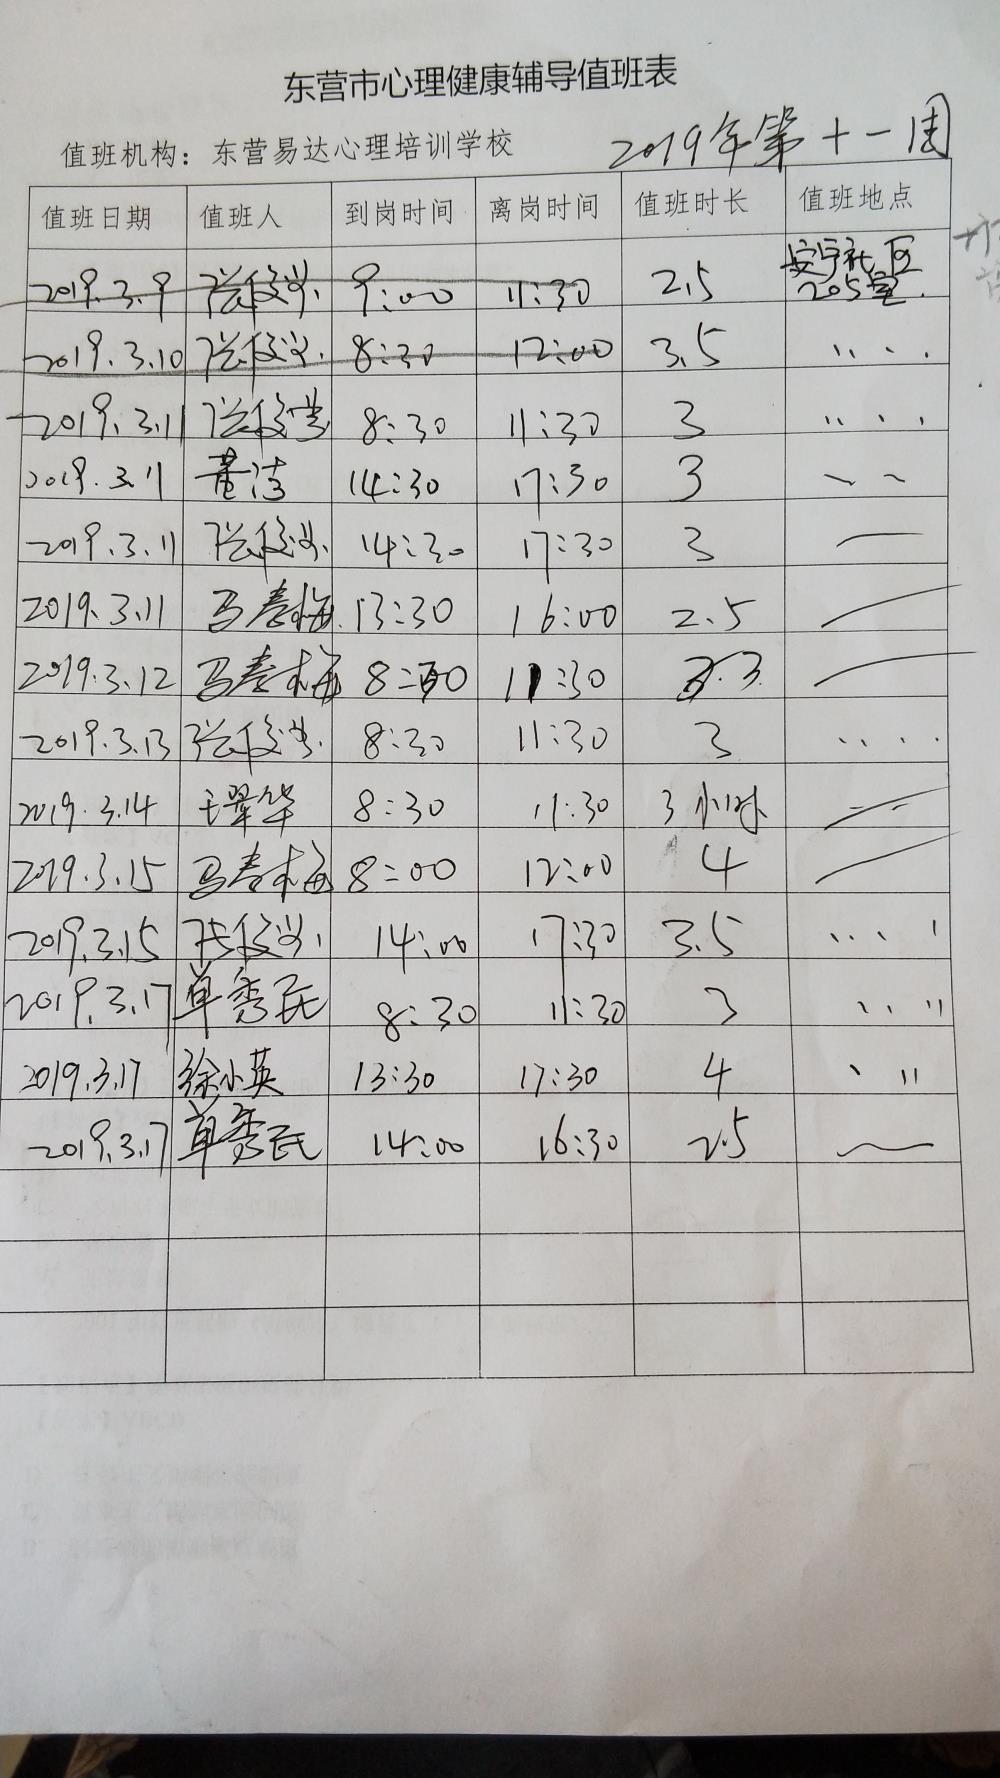 东营市心理健康辅导值班表
值班机构：东营易达心理培训学校 2019年第十一周
值班日期 值班人 到岗时间 离岗时间 值班时长 值班地点
2019.3.9 9:00 11:30 2.5 安宁社区205室
2019.3.10 8:30 12:00 3.5 〃
2019.3.11 8:30 11:30 3 〃
2019.3.11 董洁 14:30 17:30 3 〃
2019.3.11 14:30 17:30 3
2019.3.11 马春梅 13:30 16:00 2.5
2019.3.12 马春梅 11:30
2019.3.13 8:30 11:30 3 〃
2019.3.14 王翠华 8:30 11:30 3小时 〃
2019.3.15 马春梅 8:00 12:00 4
2019.3.15 14:00 17:30 3.5 〃
2019.3.17 单秀民 8:30 11:30 3 〃
2019.3.17 徐小英 13:30 17:30 4 〃
2019.3.17 单秀民 14:00 16:30 2.5